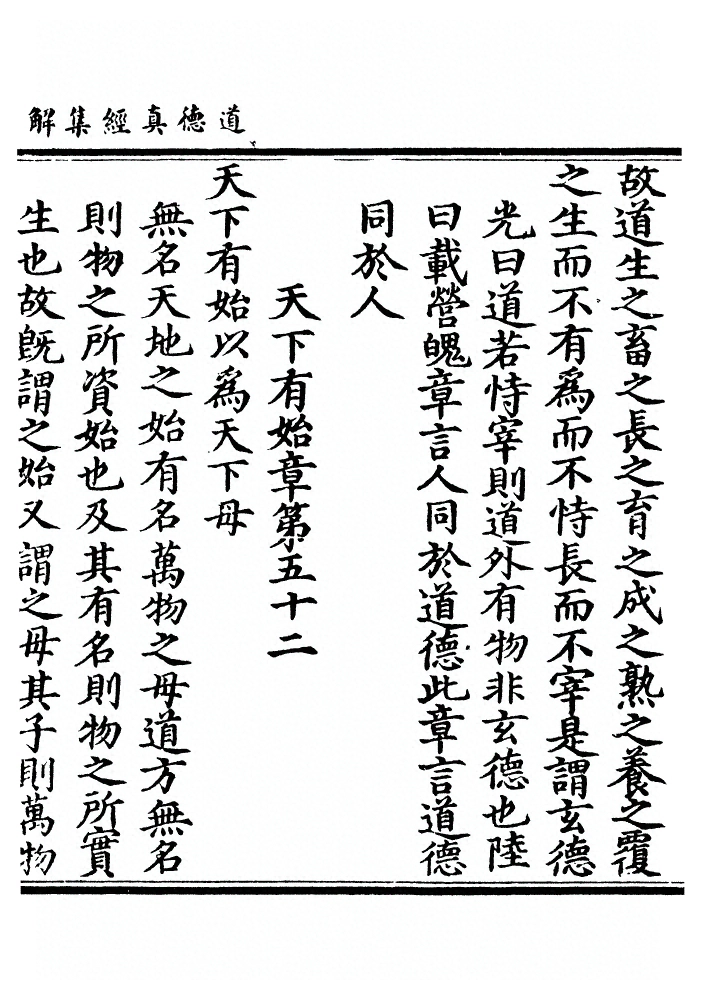 道德真經集解
故道生之畜之長之育之成之熟之養之覆
之生而不有爲而不恃長而不宰是謂玄德
光曰道若恃宰則道外有物非玄德也陸
曰載營魄章言人同於道德此章言道德
同於人
天下有始章第五十二
天下有始以爲天下母
無名天地之始有名萬物之母道方無名
則物之所資始也及其有名則物之所實
生也故旣謂之始又謂之母其子則萬物